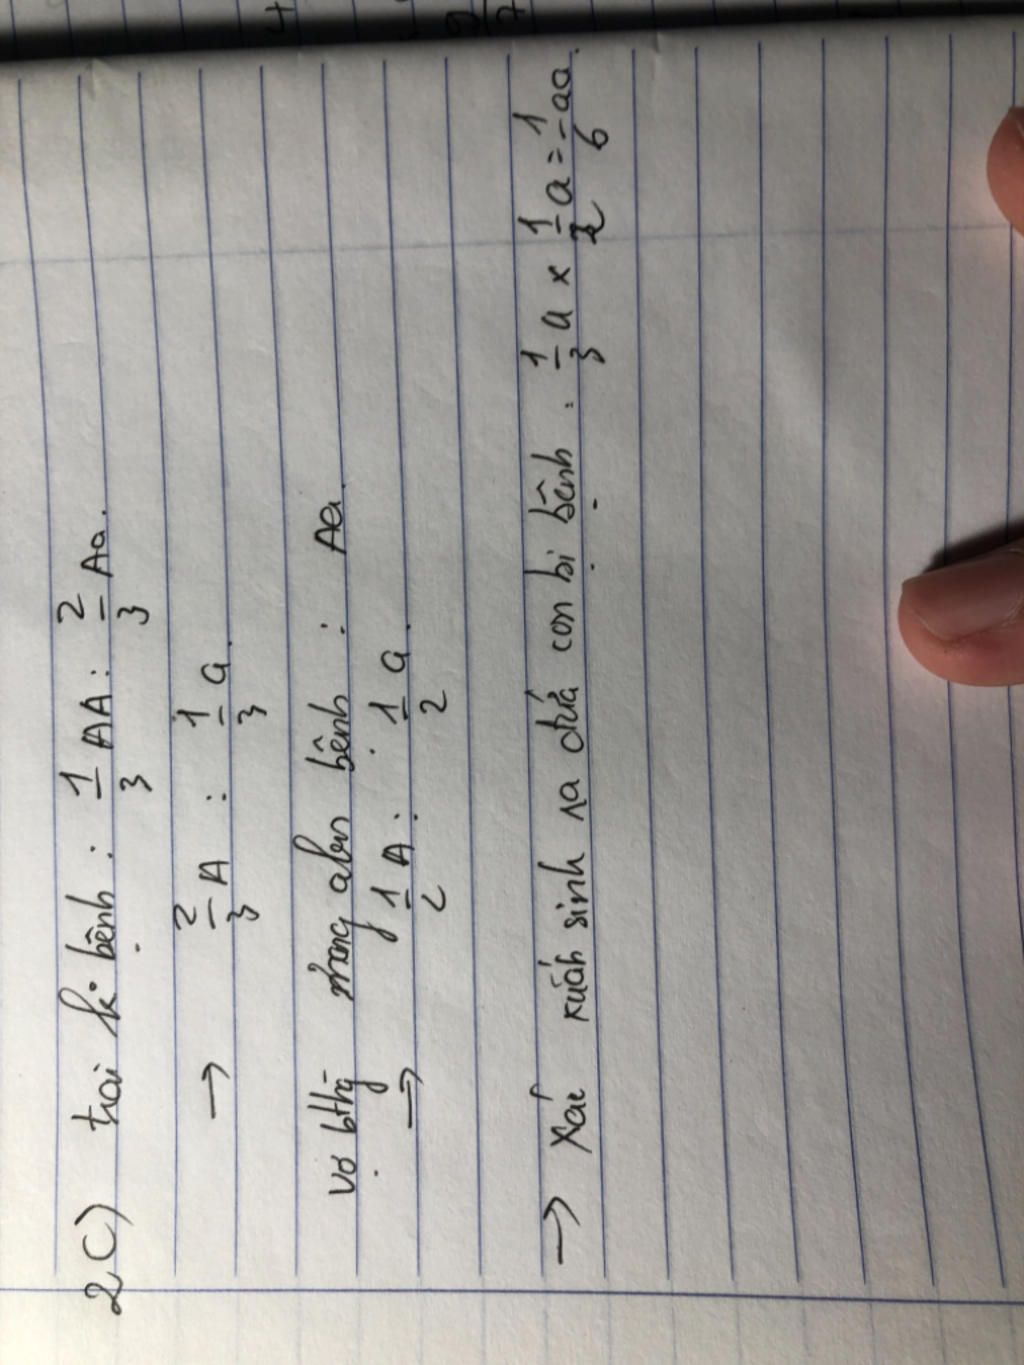 2c) trai k° bệnh : 1/3 AA : 2/3 Aa.
→ 2/3 A : 1/3 a.
vợ bthg mang alen bệnh : Aa.
→ 1/2 A : 1/2 a.
→ Xác xuất sinh ra đứa con bị bệnh : 1/3 a x 1/2 a = 1/6 aa.